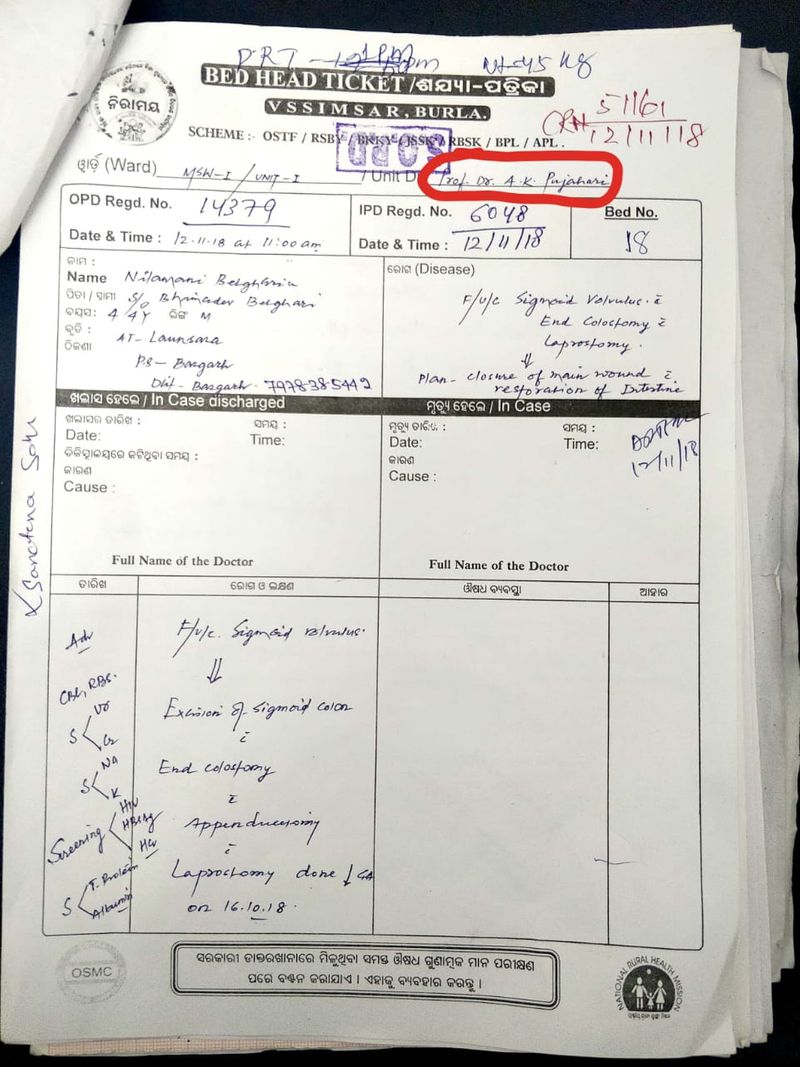 Wt-45 Kg
BED HEAD TICKET /ଶଯ୍ୟା-ପତ୍ରିକା
ନିରାମୟ
VSSIMSAR, BURLA.
CRN 51161
12/11/18
SCHEME :- OSTF / RSBY / BKKY / JSSK / RBSK / BPL / APL .
ୱାର୍ଡ଼ (Ward) MSW-I / UNIT-I / Unit D Prof. Dr. A. K. Pujahari
OPD Regd. No. 14379
IPD Regd. No. 6048
Bed No.
Date & Time : 12.11.18 at 11:00 am
Date & Time : 12/11/18
18
ନାମ :
Name Nilamani Belgharia
ପିତା / ସ୍ୱାମୀ S/o Bhimadev Belghari
ବୟସ: 44Y ଲିଙ୍ଗ M
ବୃତି :
ଠିକଣା AT- Launsara
PS- Bargarh
Dist- Bargarh. 7978385442
ରୋଗ (Disease)
F/u/c Sigmoid Volvulus. c̄
End Colostomy c̄
Laprostomy.
⇓
Plan- closure of main wound c̄
restoration of Intestine
ଖଲାସ ହେଲେ / In Case discharged
ମୃତ୍ୟୁ ହେଲେ / In Case
ଖଲାସର ତାରିଖ : ସମୟ :
Date: Time:
ଚିକିତ୍ସାଳୟରେ କଟିଥିବା ସମୟ :
କାରଣ
Cause :
ମୃତ୍ୟୁ ତାରିଖ : ସମୟ :
Date: Time:
12/11/18
କାରଣ
Cause :
Full Name of the Doctor
Full Name of the Doctor
ତାରିଖ
ରୋଗ ଓ ଲକ୍ଷଣ
ଔଷଧ ବ୍ୟବସ୍ଥା
ଆହାର
Adv
CBC, RBS.
S Ur
Cr
S Na
K
Screening HIV
HBsAg
HCV
S T. Protein
Albumin
F/u/c. Sigmoid volvulus.
⇓
Excision of Sigmoid Colon
c̄
End colostomy
c̄
Appendicectomy
c̄
Laprostomy done ↓ GA
on 16.10.18.
OSMC
ସରକାରୀ ଡାକ୍ତରଖାନାରେ ମିଳୁଥିବା ସମସ୍ତ ଔଷଧ ଗୁଣାତ୍ମକ ମାନ ପରୀକ୍ଷଣ
ପରେ ବଣ୍ଟନ କରାଯାଏ । ଏହାକୁ ବ୍ୟବହାର କରନ୍ତୁ ।
NATIONAL RURAL HEALTH MISSION